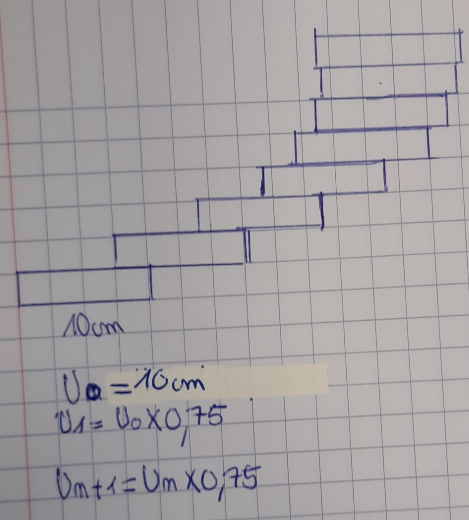 10cm
U0 = 10cm
U1 = U0 X 0,75
Un+1 = Un X 0,75